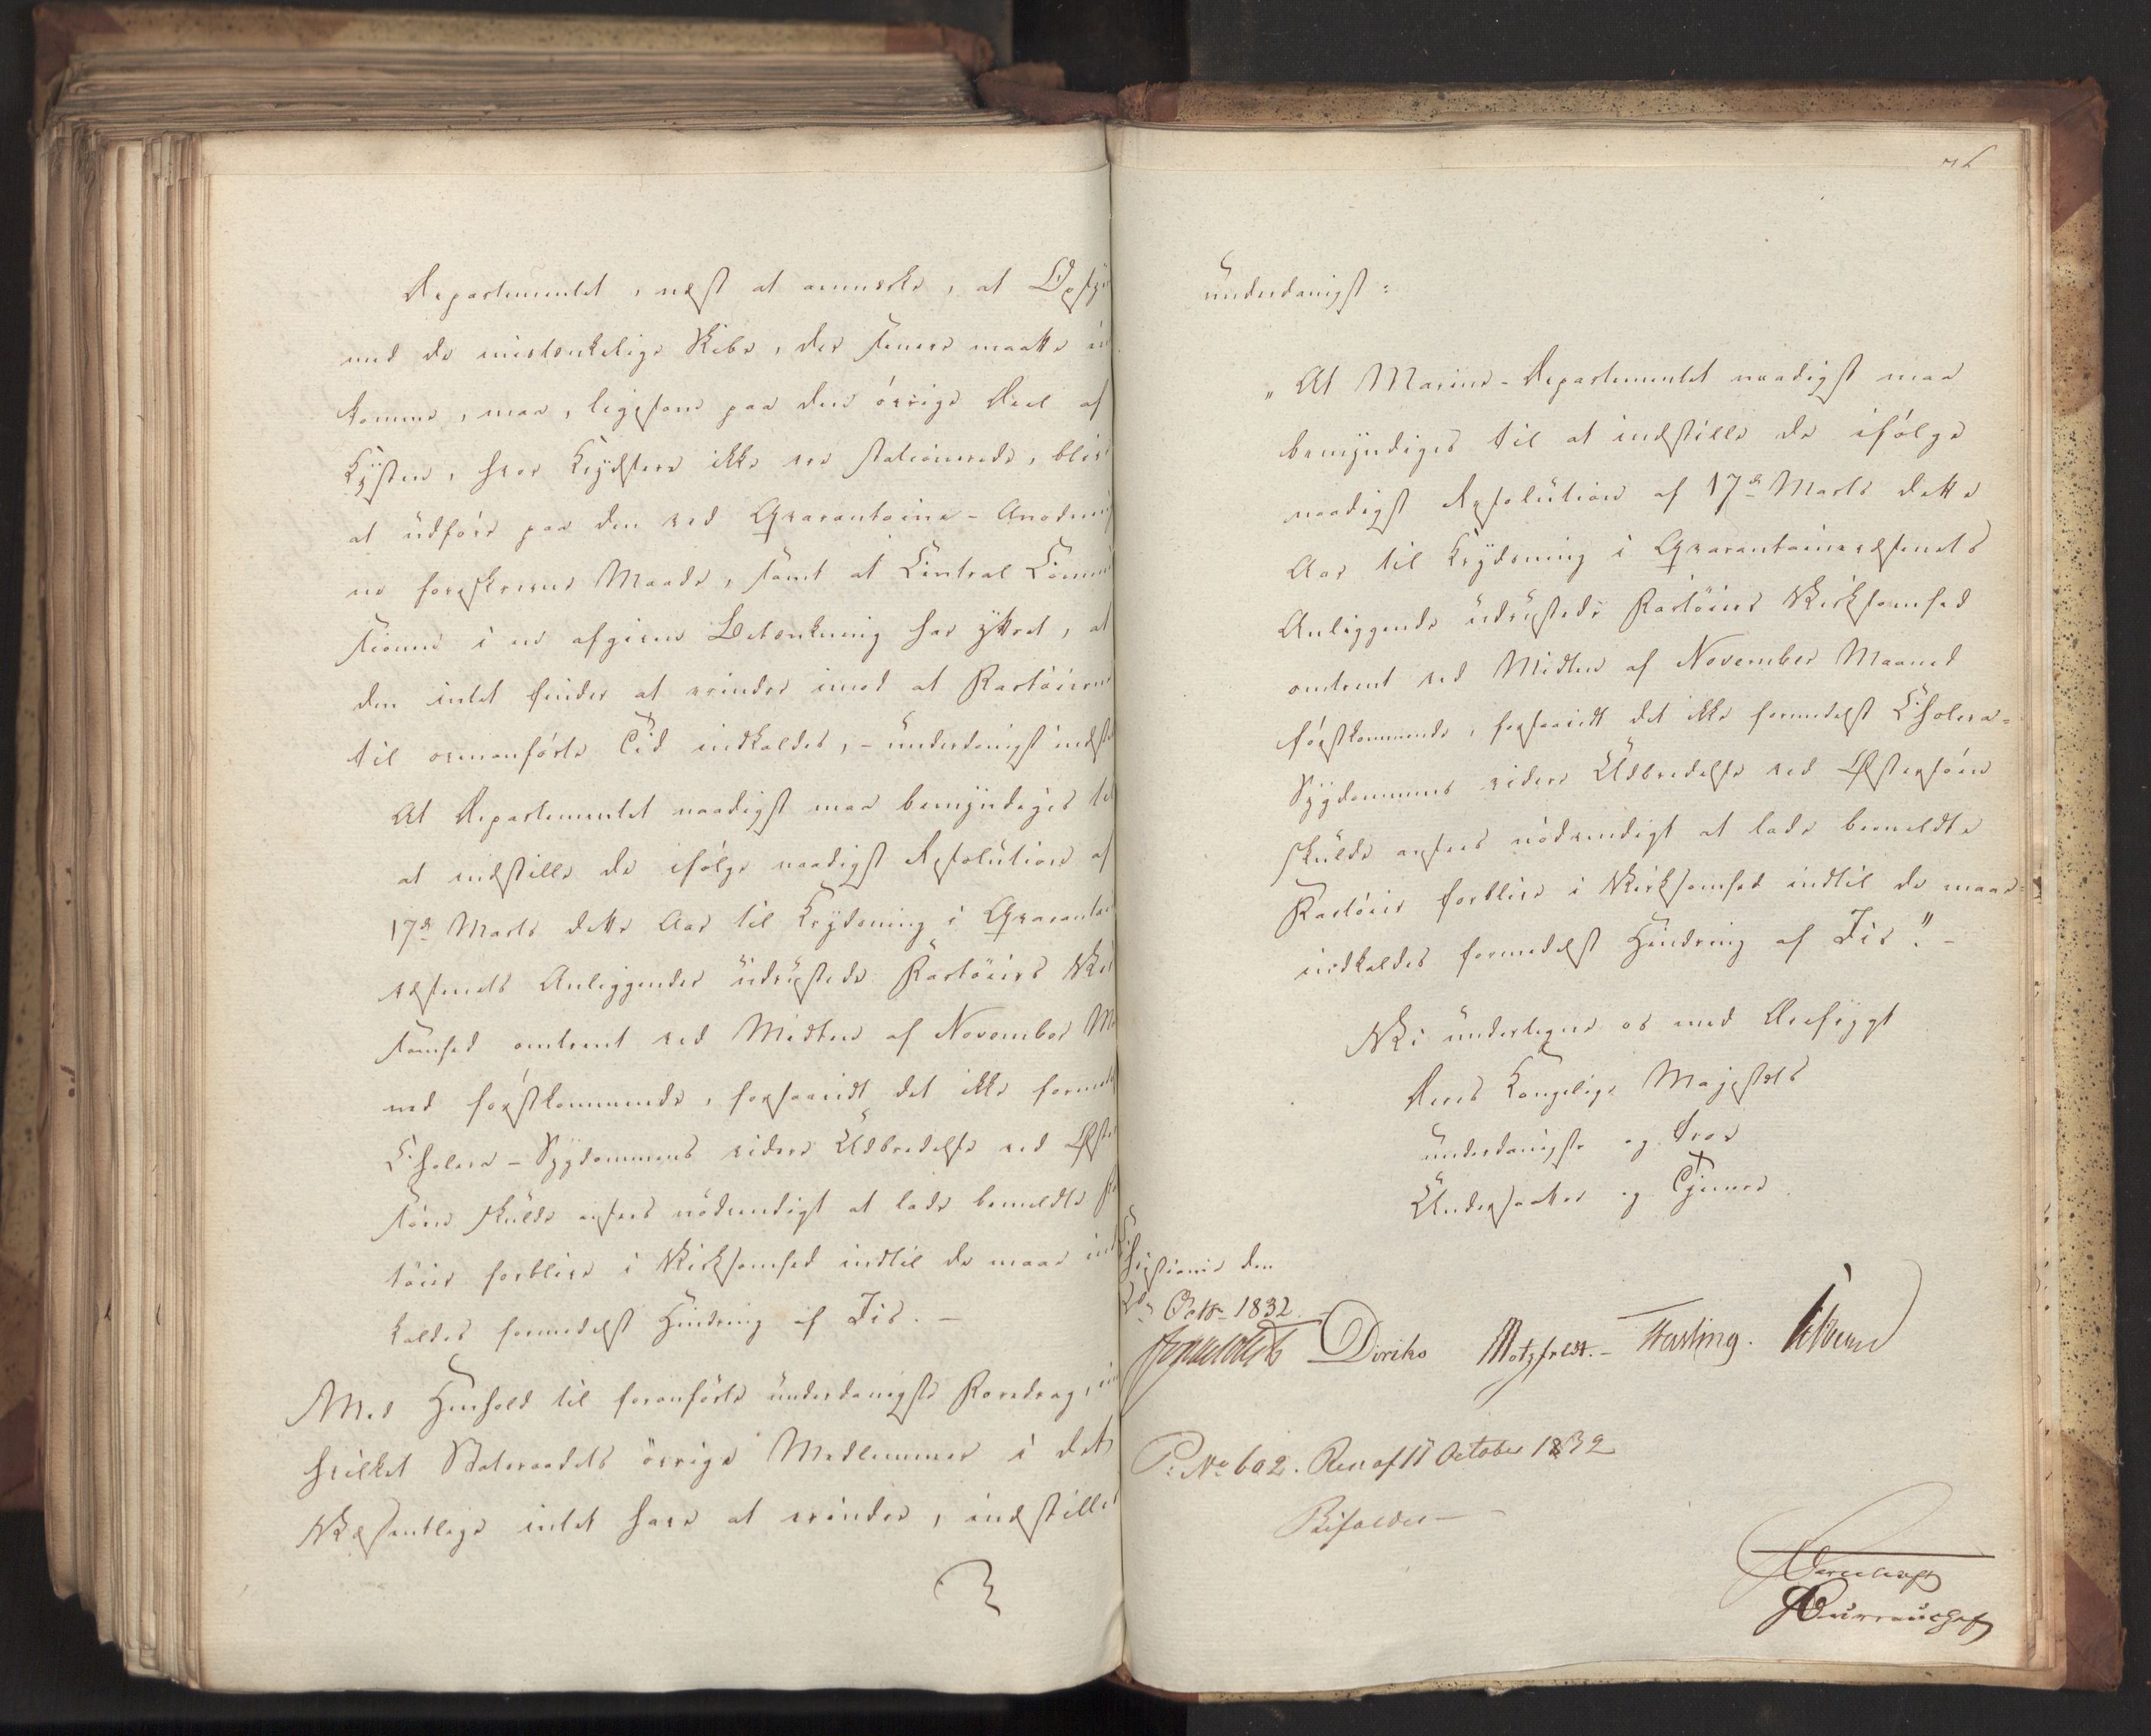 Departementet, næst at anmærke, at Opsyn
med de mistænkelige Skibe, der senere maatte an
komme, maa, ligesom paa den övrige Deel af
Kysten, hvor Krydsere ikke ere stationerede, blive
at udföre paa den ved Qvarantaine-Anordning
en foreskrevne Maade, samt at Central Commis
sionen i en afgiven Betænkning har yttret, at
den intet finder at erindre imod at Fartöierne
til ovenanförte Tid indkaldes, - underdanigst indstil
At Departementet naadigst maa bemyndiges til
at indstille de ifölge naadigst Resolution af
17de Marts dette Aar til Krydsning i Qvarantai
væsenets Anliggender udrustede Fartöiers Virk
somhed omtrent ved Midten af November Maa
ned förstkommende, forsaavidt det ikke formedelst
Cholera-Sygdommens videre Udbredelse ved Öster
söen skulde ansees nödvendigt at lade bemeldte Far
töier forblive i Virksomhed indtil de maae ind
kaldes formedelst Hindring af Iis. -
Med Henhold til foranförte underdanigste Foredrag, im
hvilket Statsraadets övrige Medlemmer i det
Væsentlige intet have at erindre, indstilles
underdanigst:
"At Marine-Departementet naadigst maa
bemyndiges til at indstille de ifölge
naadigst Resolution af 17de Marts dette
Aar til Krydsning i Qvarantainevæsenets
Anliggende udrustede Fartöiers Virksomhed
omtrent ved Midten af November Maaned
förstkommende, forsaavidt det ikke formedelst Cholera-
Sygdommens videre Udbredelse ved Östersöen
skulde ansees nödvendigt at lade bemeldte
Fartöier forblive i Virksomhed indtil de maae
indkaldes formedelst Hindring af Iis." -
Vi undertegne os med Ærefrygt
Deres Kongelige Majestæts
underdanigste og troe
Undersaatter og Tjenere
Christiania den
Octbr 1832.
Diriks Motzfeldt. - Fasting.
P: No 602. Res af 11 October 1832
Bifaldes -